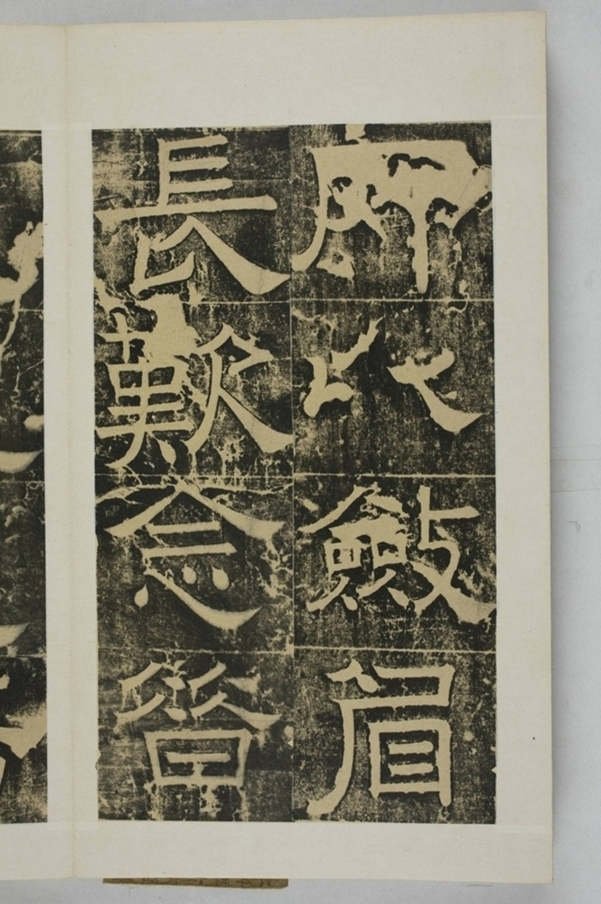 所以斂眉
長歎念昔